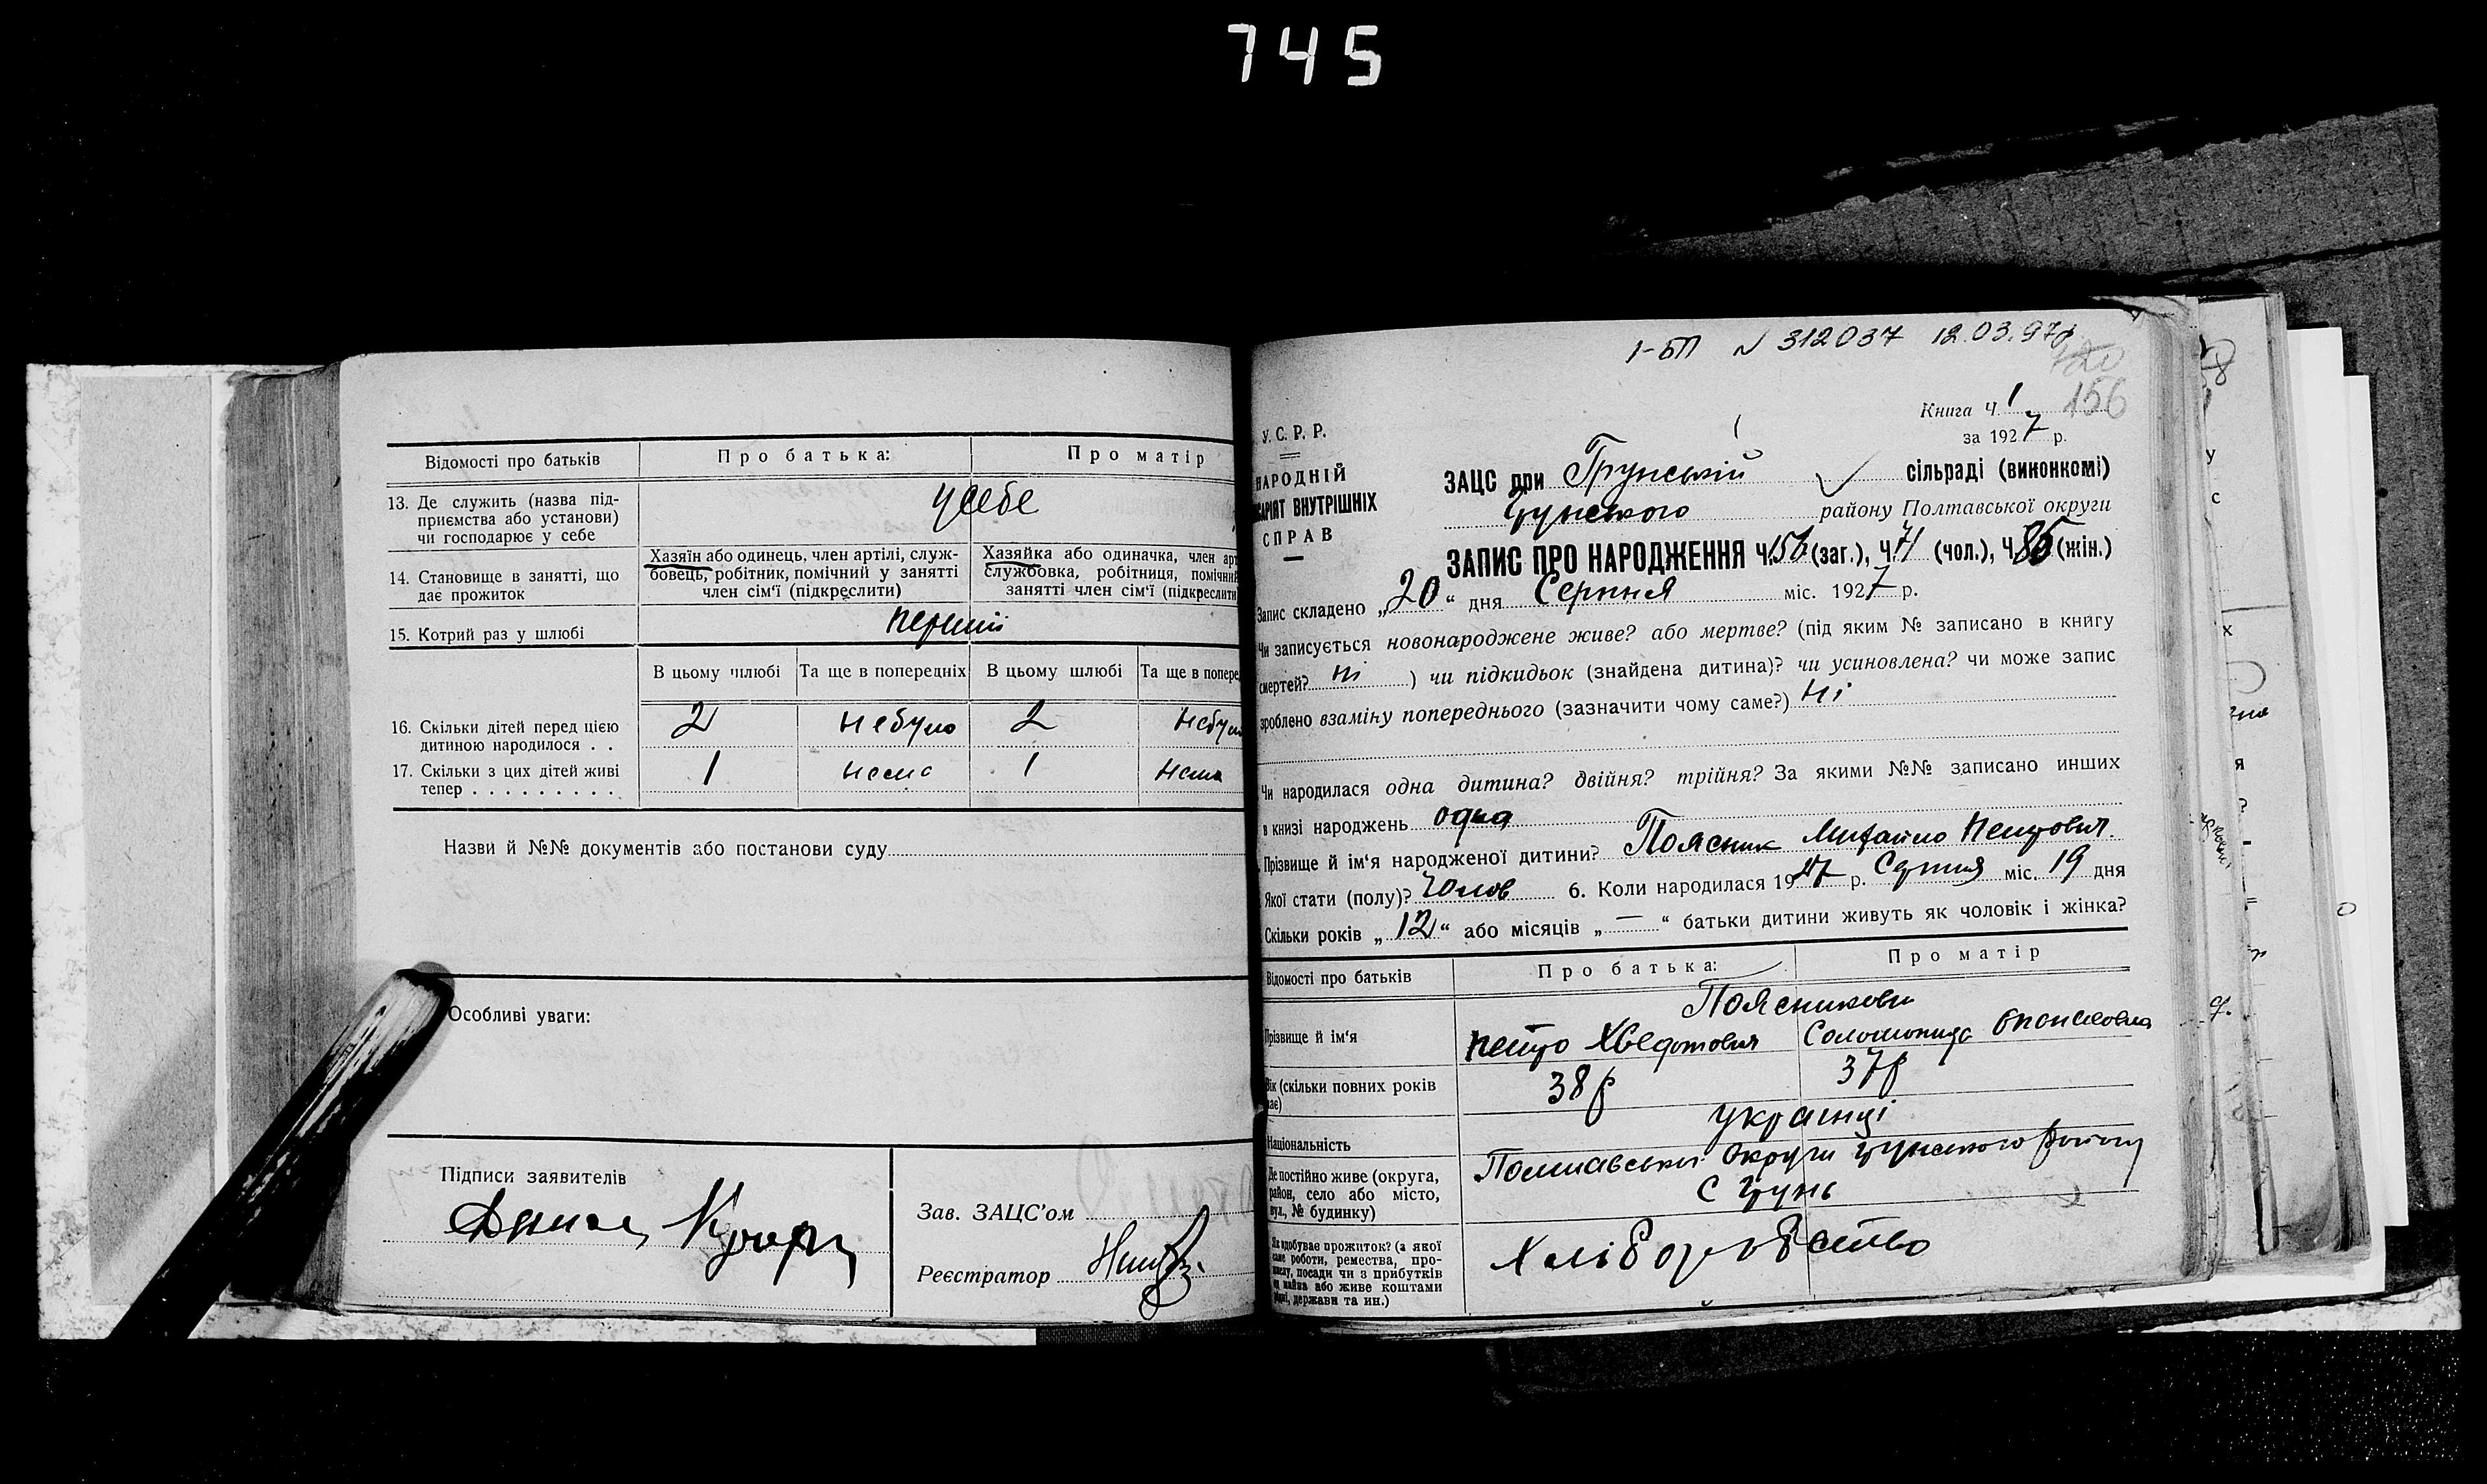 745
Відомості про батьків
Про батька:
Про матір
13. Де служить (назва під-
приємства або установи)
чи господарює у себе
у себе
14. Становище в занятті, що
дає прожиток
Хазяїн або одинець, член артілі, служ-
бовець, робітник, помічний у занятті
член сім'ї (підкреслити)
Хазяйка або одиначка, член арт
службовка, робітниця, помічний
занятті член сім'ї (підкреслити
15. Котрий раз у шлюбі
перший
В цьому шлюбі
Та ще в попередніх
В цьому шлюбі
Та ще в попере
16. Скільки дітей перед цією
дитиною народилося . .
2 небуло 2
17. Скільки з цих дітей живі
тепер . . . . . . . . .
1 нема 1 нема
Назви й №№ документів або постанови суду
Особливі уваги:
Підписи заявителів
Зав. ЗАЦС'ом
Реєстратор
1-БП N 312037 12.03.97
156
Книга Ч. 1
за 1927 р.
У. С. Р. Р.
НАРОДНІЙ
ВНУТРІШНІХ
СПРАВ
ЗАЦС при Грунській сільраді (виконкомі)
Грунського району Полтавської округи
ЗАПИС ПРО НАРОДЖЕННЯ Ч. 156 (заг.), Ч. 71 (чол.), Ч. 85 (жін.)
Запис складено „20“ дня Серпня міс. 1927 р.
Чи записується новонароджене живе? або мертве? (під яким № записано в книгу
смертей? ні ) чи підкидьок (знайдена дитина)? чи усиновлена? чи може запис
зроблено взаміну попереднього (зазначити чому саме?) ні
Чи народилася одна дитина? двійня? трійня? За якими №№ записано инших
в книзі народжень одна
Прізвище й ім'я народженої дитини? Поясник Михайло Петрович.
Якої стати (полу)? Чолов 6. Коли народилася 1927 р. Серпня міс. 19 дня
Скільки років „12“ або місяців „—“ батьки дитини живуть як чоловік і жінка?
Відомості про батьків
Про батька:
Про матір
Прізвище й ім'я
Поясникови
Петро Хведотович
Соломонида
Вік (скільки повних років
має)
38 р
37 р
Національність
українці
Де постійно живе (округа,
район, село або місто,
вул., № будинку)
Полтавської округи Грунського району
с Грунь
Як здобуває прожиток? (з якої
саме роботи, ремества, про-
мислу, посади чи з прибутків
від майна або живе коштами
рідні, держави та ин.)
Хліборобство